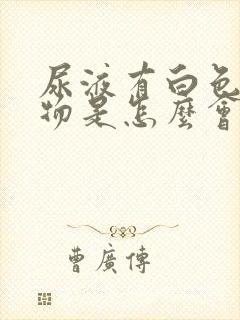 尿液有白色
物是怎麼會
曹廣傳